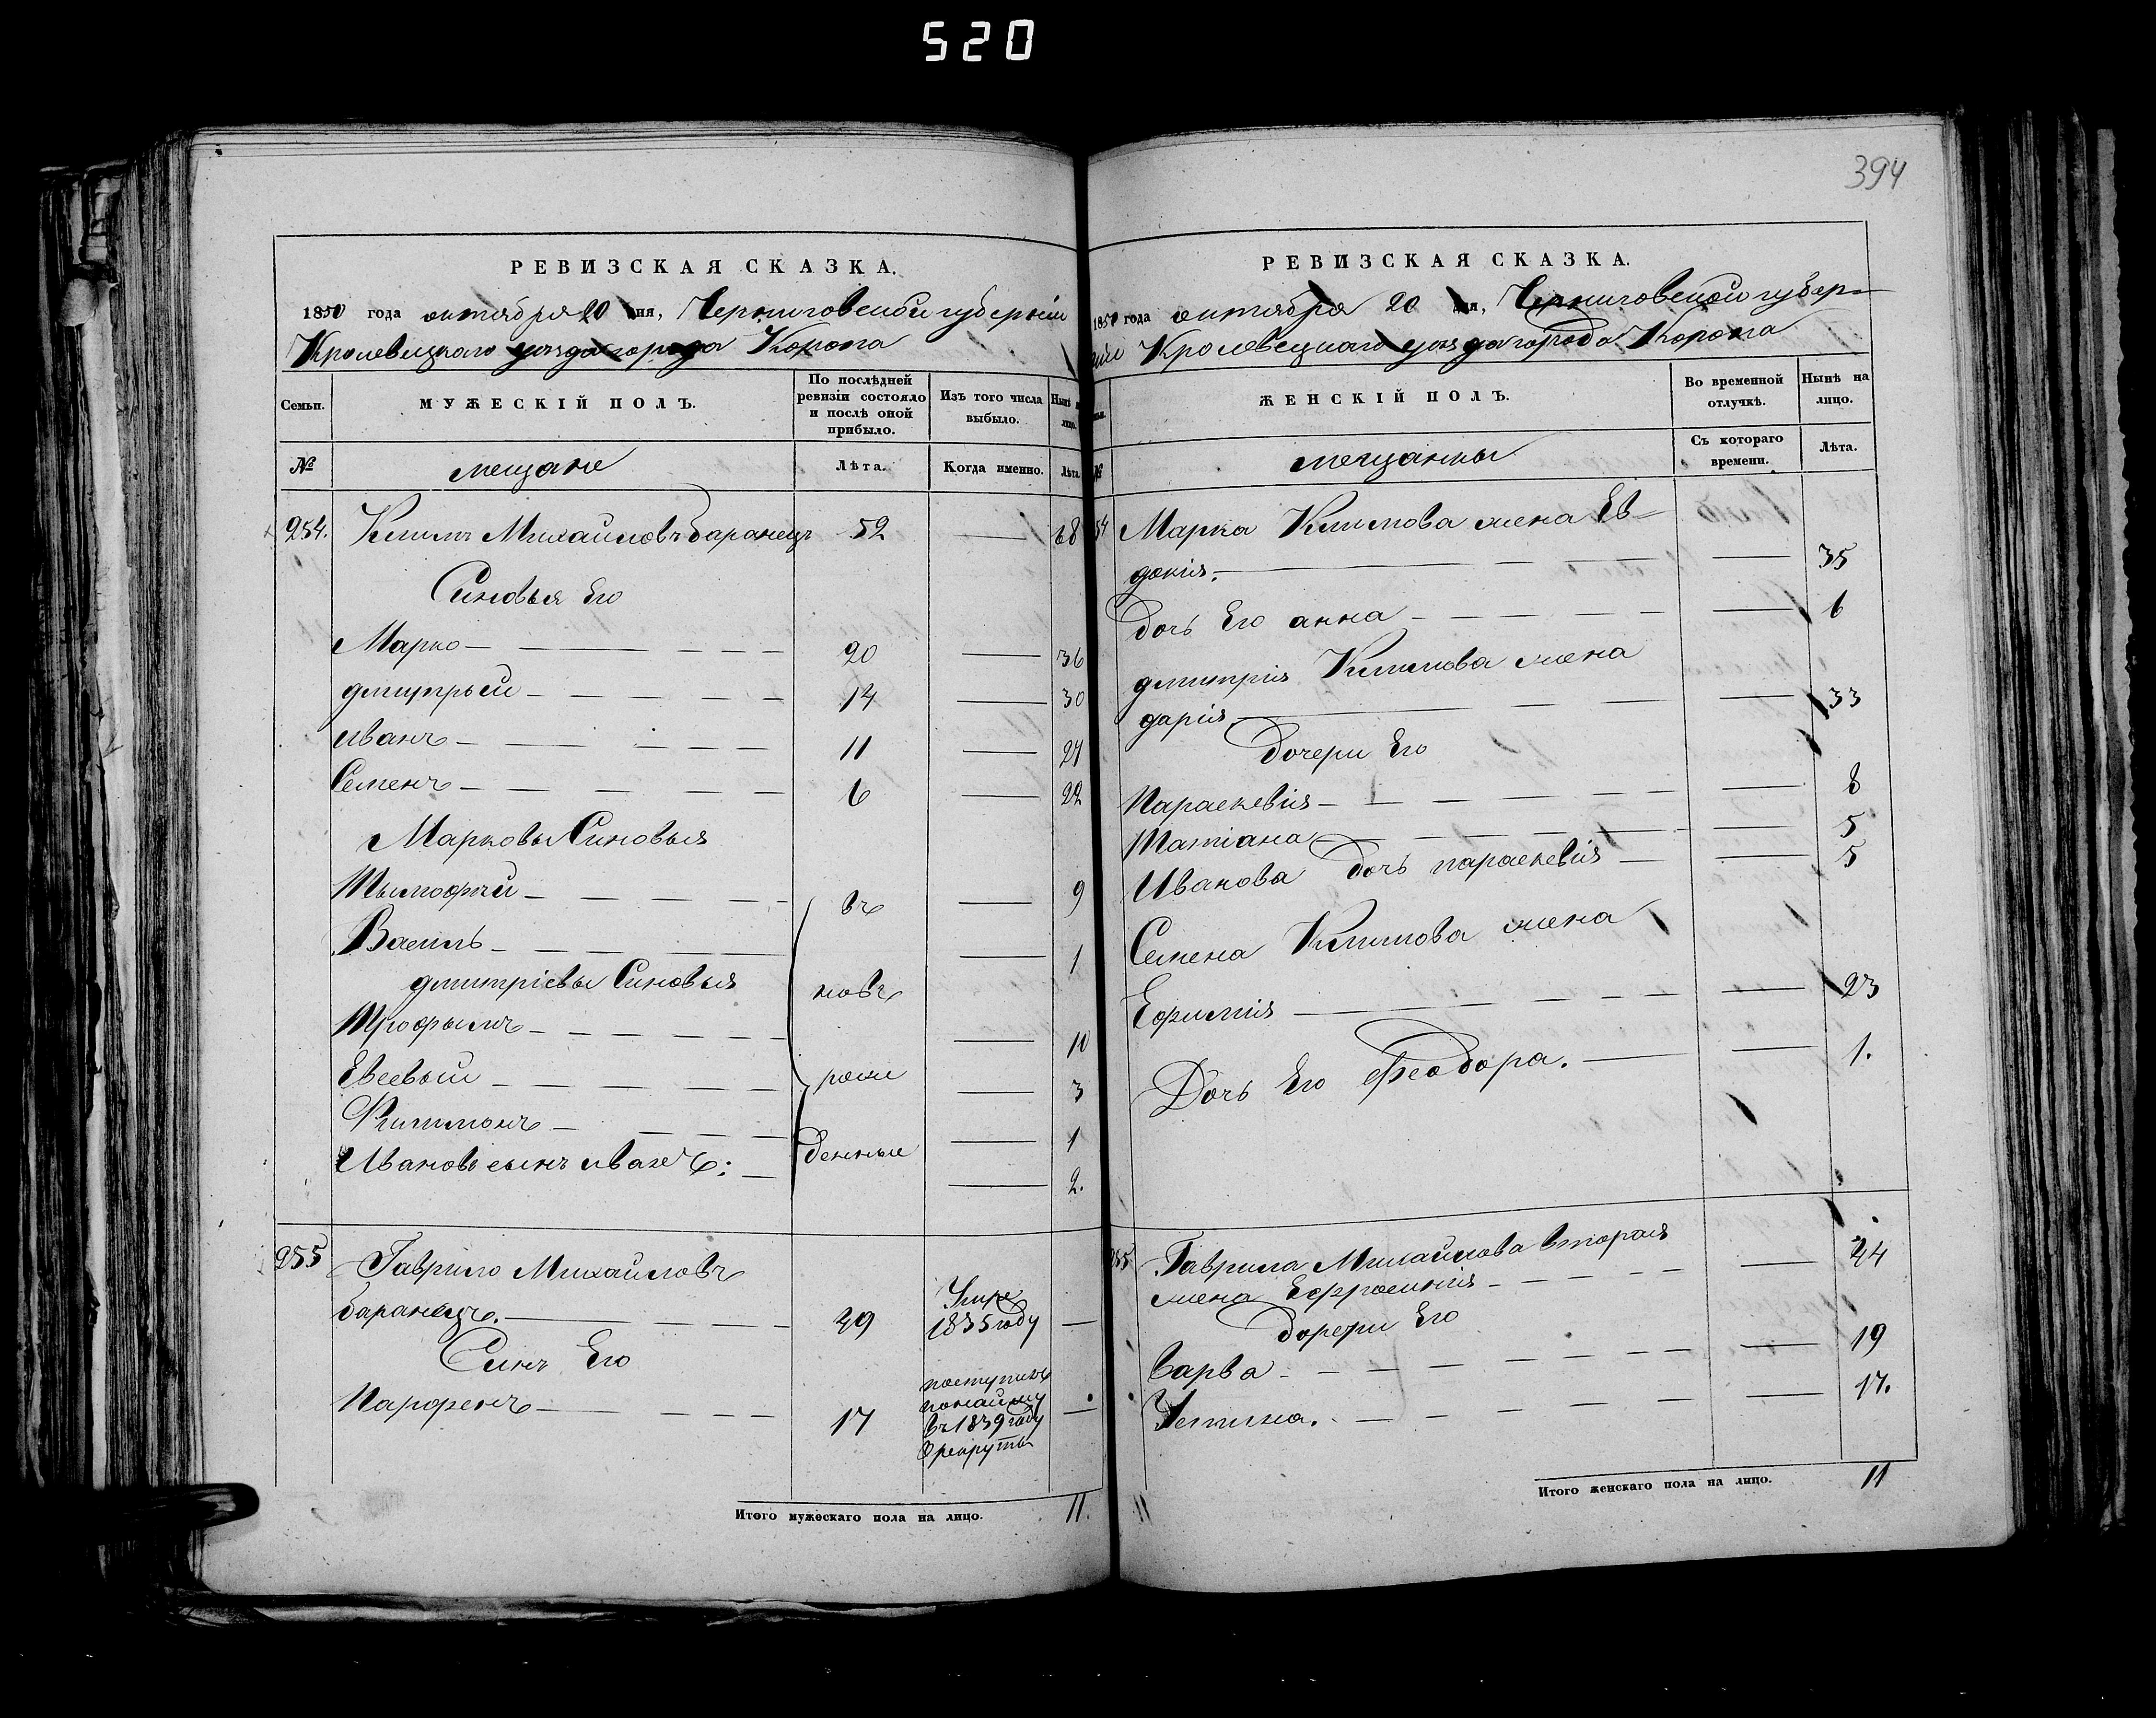 520
394
РЕВИЗСКАЯ СКАЗКА.
1850 года октября 20 дня, Черниговской губерніи
Кролевецкаго уѣзда города Коропа
Семьи.
МУЖЕСКІЙ ПОЛЪ.
По послѣдней ревизіи состояло и послѣ оной прибыло.
Изъ того числа выбыло.
Нынѣ на лицо.
№
мещане
Лѣта.
Когда именно.
Лѣта.
254. Климъ Михайловъ баранецъ 52 — 68
Синовья Его
Марко — 20 — 36
дмитрый — 14 — 30
иванъ — 11 — 27
Семенъ — 6 — 22
Марковы Синовья
Тымофтей — 9
Василь — 1
дмитріевы Синовья
Трофымъ — 10
Евсевый — 3
Филимонъ — 1
Ивановъ сынъ иванъ: — 2.
въ
новъ
рож
денные
255 Гаврило Михайловъ
баранецъ. — 49 Умре 1835 году —
Синъ Его
Парфенъ — 17 поступилъ
понайму
въ 1839 году
в рекруты —
Итого мужескаго пола на лицо. 11.
РЕВИЗСКАЯ СКАЗКА.
1850 года октября 20 дня, Черниговской губер-
ніи Кролевецкаго уѣзда города Коропа
ЖЕНСКІЙ ПОЛЪ.
Во временной отлучкѣ.
Нынѣ на лицо.
№
мещанки
Съ котораго времени.
Лѣта.
54 Марка Климова жена Ев-
докия. — 35
дочь Его анна — 6
дмитрия Климова жена
дария — 33
дочери Его
Параскевия — 8
Татіана — 5
Иванова дочь параскевия — 5
Семена Климова жена
Ефимия — 23
Дочь Его Феодора. — 1.
255 Гаврила Михайлова вторая
жена Ефросиния — 44
дочери Его
варва — 19
Устина. — 17.
Итого женскаго пола на лицо. 11